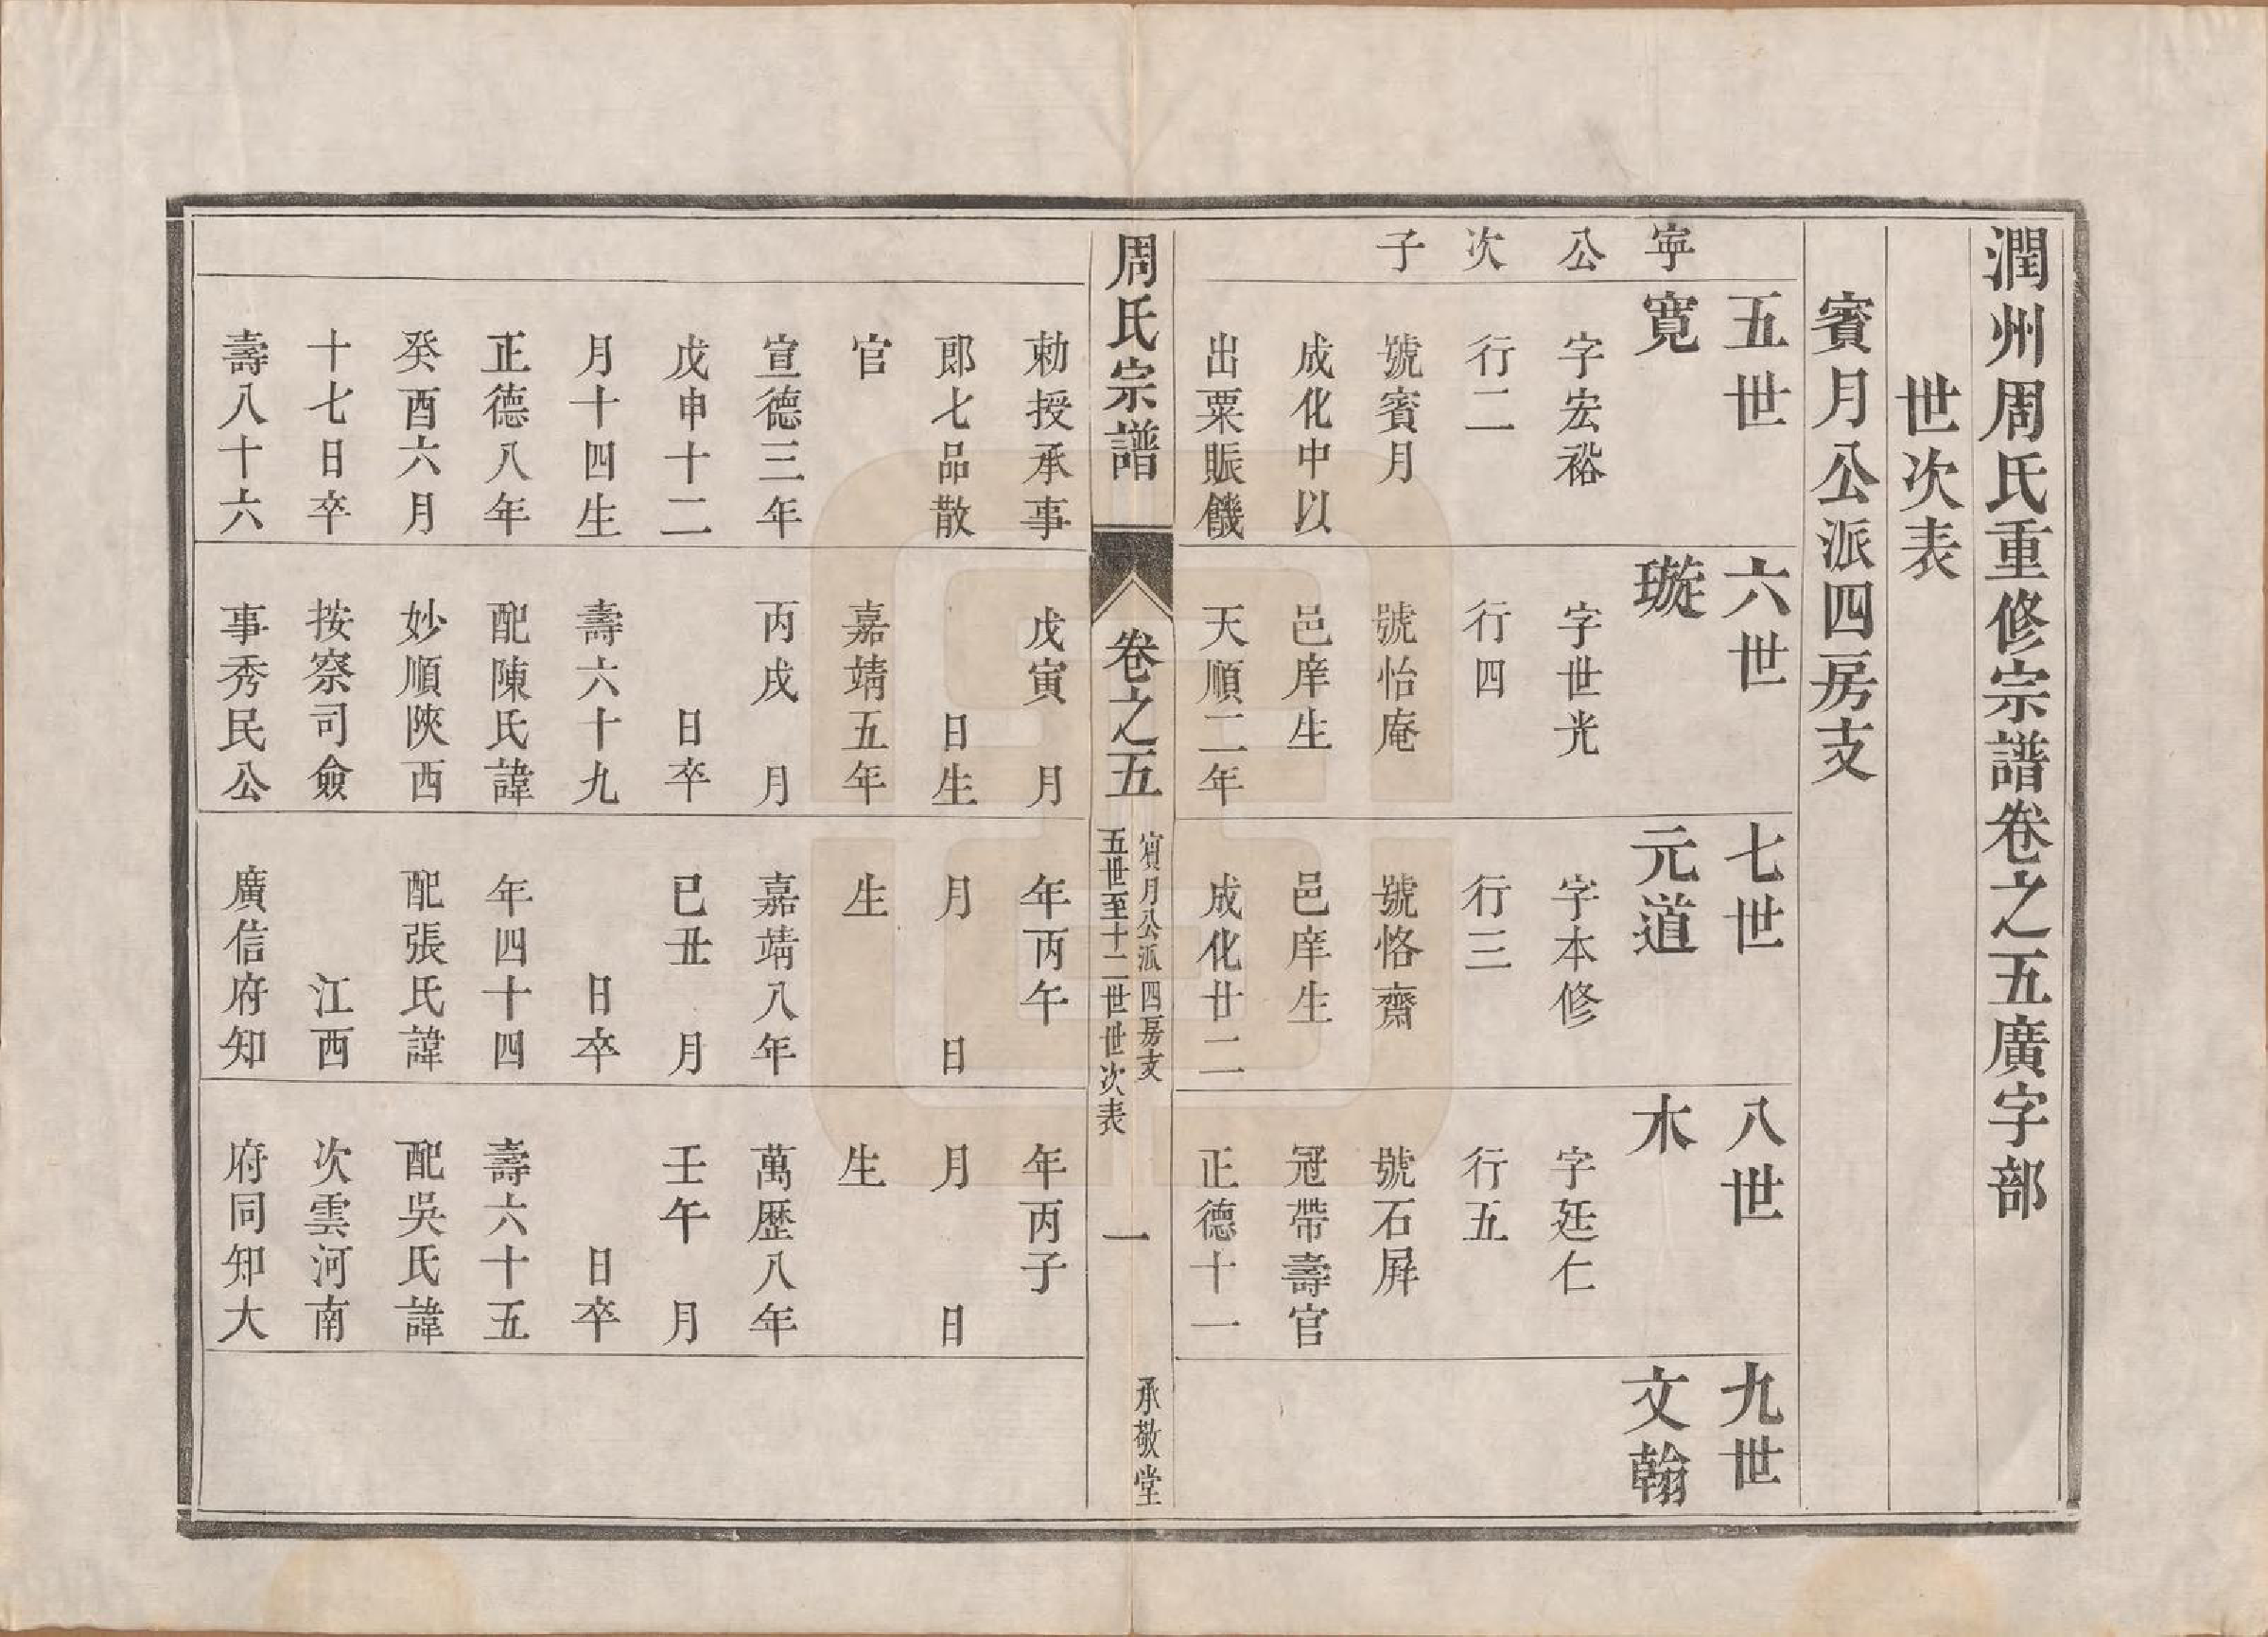 潤州周氏重修宗譜卷之五廣字部
世次表
賓月公派四房支
五世
六世
七世
八世
九世
寕公次子
寛
字宏裕
行二
號賓月
成化中以
出粟賑饑
璇
字世光
行四
號怡庵
邑庠生
天順二年
元道
字本修
行三
號恪齋
邑庠生
成化廿二
木
字廷仁
行五
號石屛
冠帶壽官
正德十一
文翰
周氏宗譜
卷之五
賓月公派四房支
五世至十二世世次表
一
承敬堂
勅授承事
郎七品散
官
宣德三年
戊申十二
月十四生
正德八年
癸酉六月
十七日卒
壽八十六
戊寅 月
日生
嘉靖五年
丙戌 月
日卒
壽六十九
配陳氏諱
妙順陝西
按察司僉
事秀民公
年丙午
月 日
生
嘉靖八年
已丑 月
日卒
年四十四
配張氏諱
江西
廣信府知
年丙子
月 日
生
萬歷八年
壬午 月
日卒
壽六十五
配吳氏諱
次雲河南
府同知大